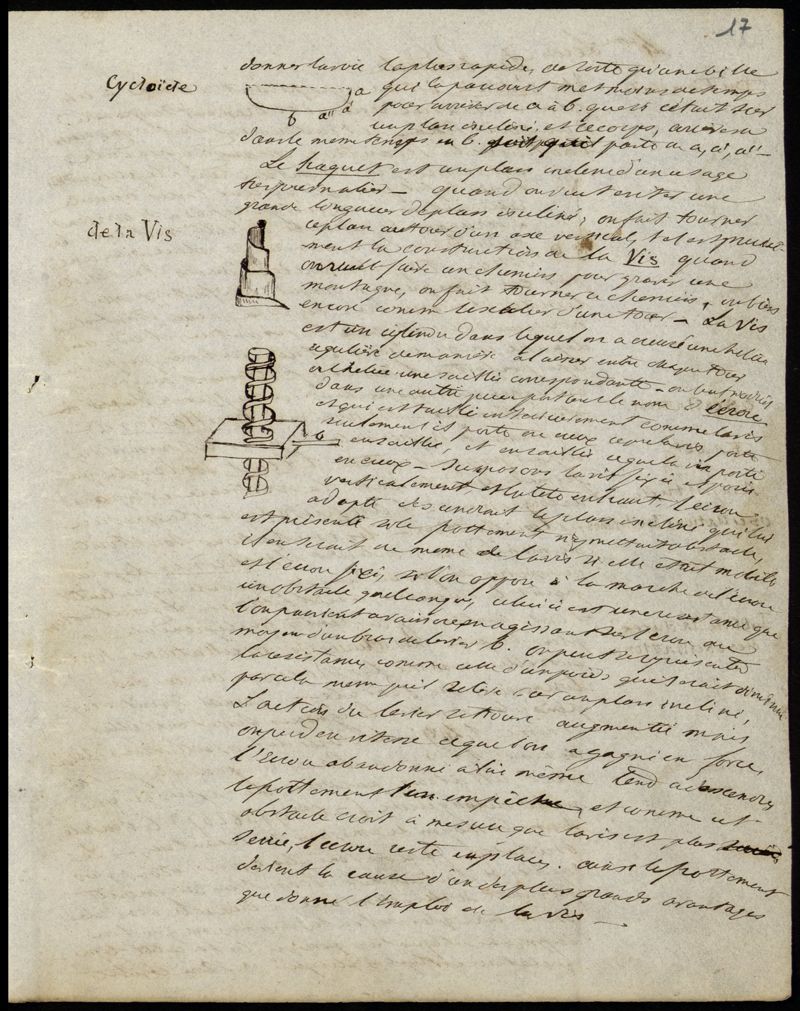 17
Cycloïde
donner la voie la plus rapide, de sorte qu'une bille
qui la parcourt met moins de temps
pour arriver de a à b. que si c'était sur
un plan incliné, et ce corps, arrivera
dans le meme temps en b. parte de a, a', a''-
a
b a'' a'
Le haquet est un plan incliné d'un usage
tres journalier - quand on veut eviter une
grande longueur de plan incliné, on fait tourner
de la Vis
ce plan autour d'un axe vertical, tel est
la construction de la Vis quand
on veut faire un chemin pour gravir une
montagne, on fait tourner ce chemin, ou bien
encore comme l'escalier d'une tour - La Vis
est un cylindre dans lequel on a creusé une helice
reguliere de maniere à laisser entre chaque tour
d'helice une saillie correspondante - on
dans une autre piece portant le nom d'écrou
et qui est taillée interieurement comme la vis
seulement il porte en creux ce que la vis porte
b
en saillie, et en saillie ce que la vis porte
en creux - Supposons la vis fixée et posée
verticalement, et la tete en haut, l'ecrou
adapté descendrait le plan incliné qui lui
est presenté si le frottement n'y mettait obstacle,
il en serait de meme de la vis si elle etait mobile
et l'ecrou fixé, si l'on oppose à la marche de l'ecrou
un obstacle quelconque, celui ci est une resistance que
l'on parvient a vaincre en agissant sur l'ecrou au
moyen d'un bras de levier b. on peut se representer
la resistance, comme celle d'un poids, qui serait diminué
par cela meme qu'il se leve sur un plan incliné,
L'action du levier se trouve augmentée mais
on perd en vitesse ce que l'on a gagné en force,
l'Ecrou abandonné à lui même tend a descendre,
le frottement l'en empêche, et comme cet
obstacle croit à mesure que la vis est plus
serrée, l'ecrou reste en place. ainsi le frottement
devient la cause d'un des plus grands avantages
que donne l'Emploi de la vis -